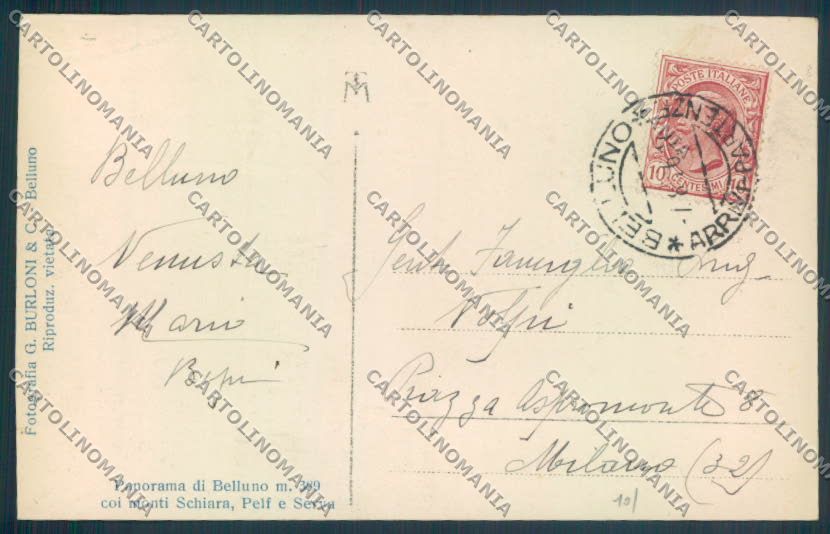 Fotografia G. BURLONI & C. - Belluno
Riproduz. vietata
Belluno
Venusta
Mario
Panorama di Belluno m. 389
coi monti Schiara, Pelf e Serva
POSTE ITALIANE
10 CENTESIMI
BELLUNO * ARRIVI PARTENZE *
Gent. Famiglia Ing.
Volpi
Piazza Aspromonte 8
Milano (32)
10/
CARTOLINOMANIA